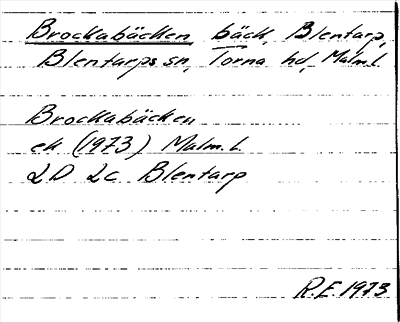 Brockabäcken bäck, Blentarp,
Blentarps sn, Torna hd, Malm.l.
Brockabäcken
ek (1973) Malm.l.
2D 2c Blentarp
R.E. 1973